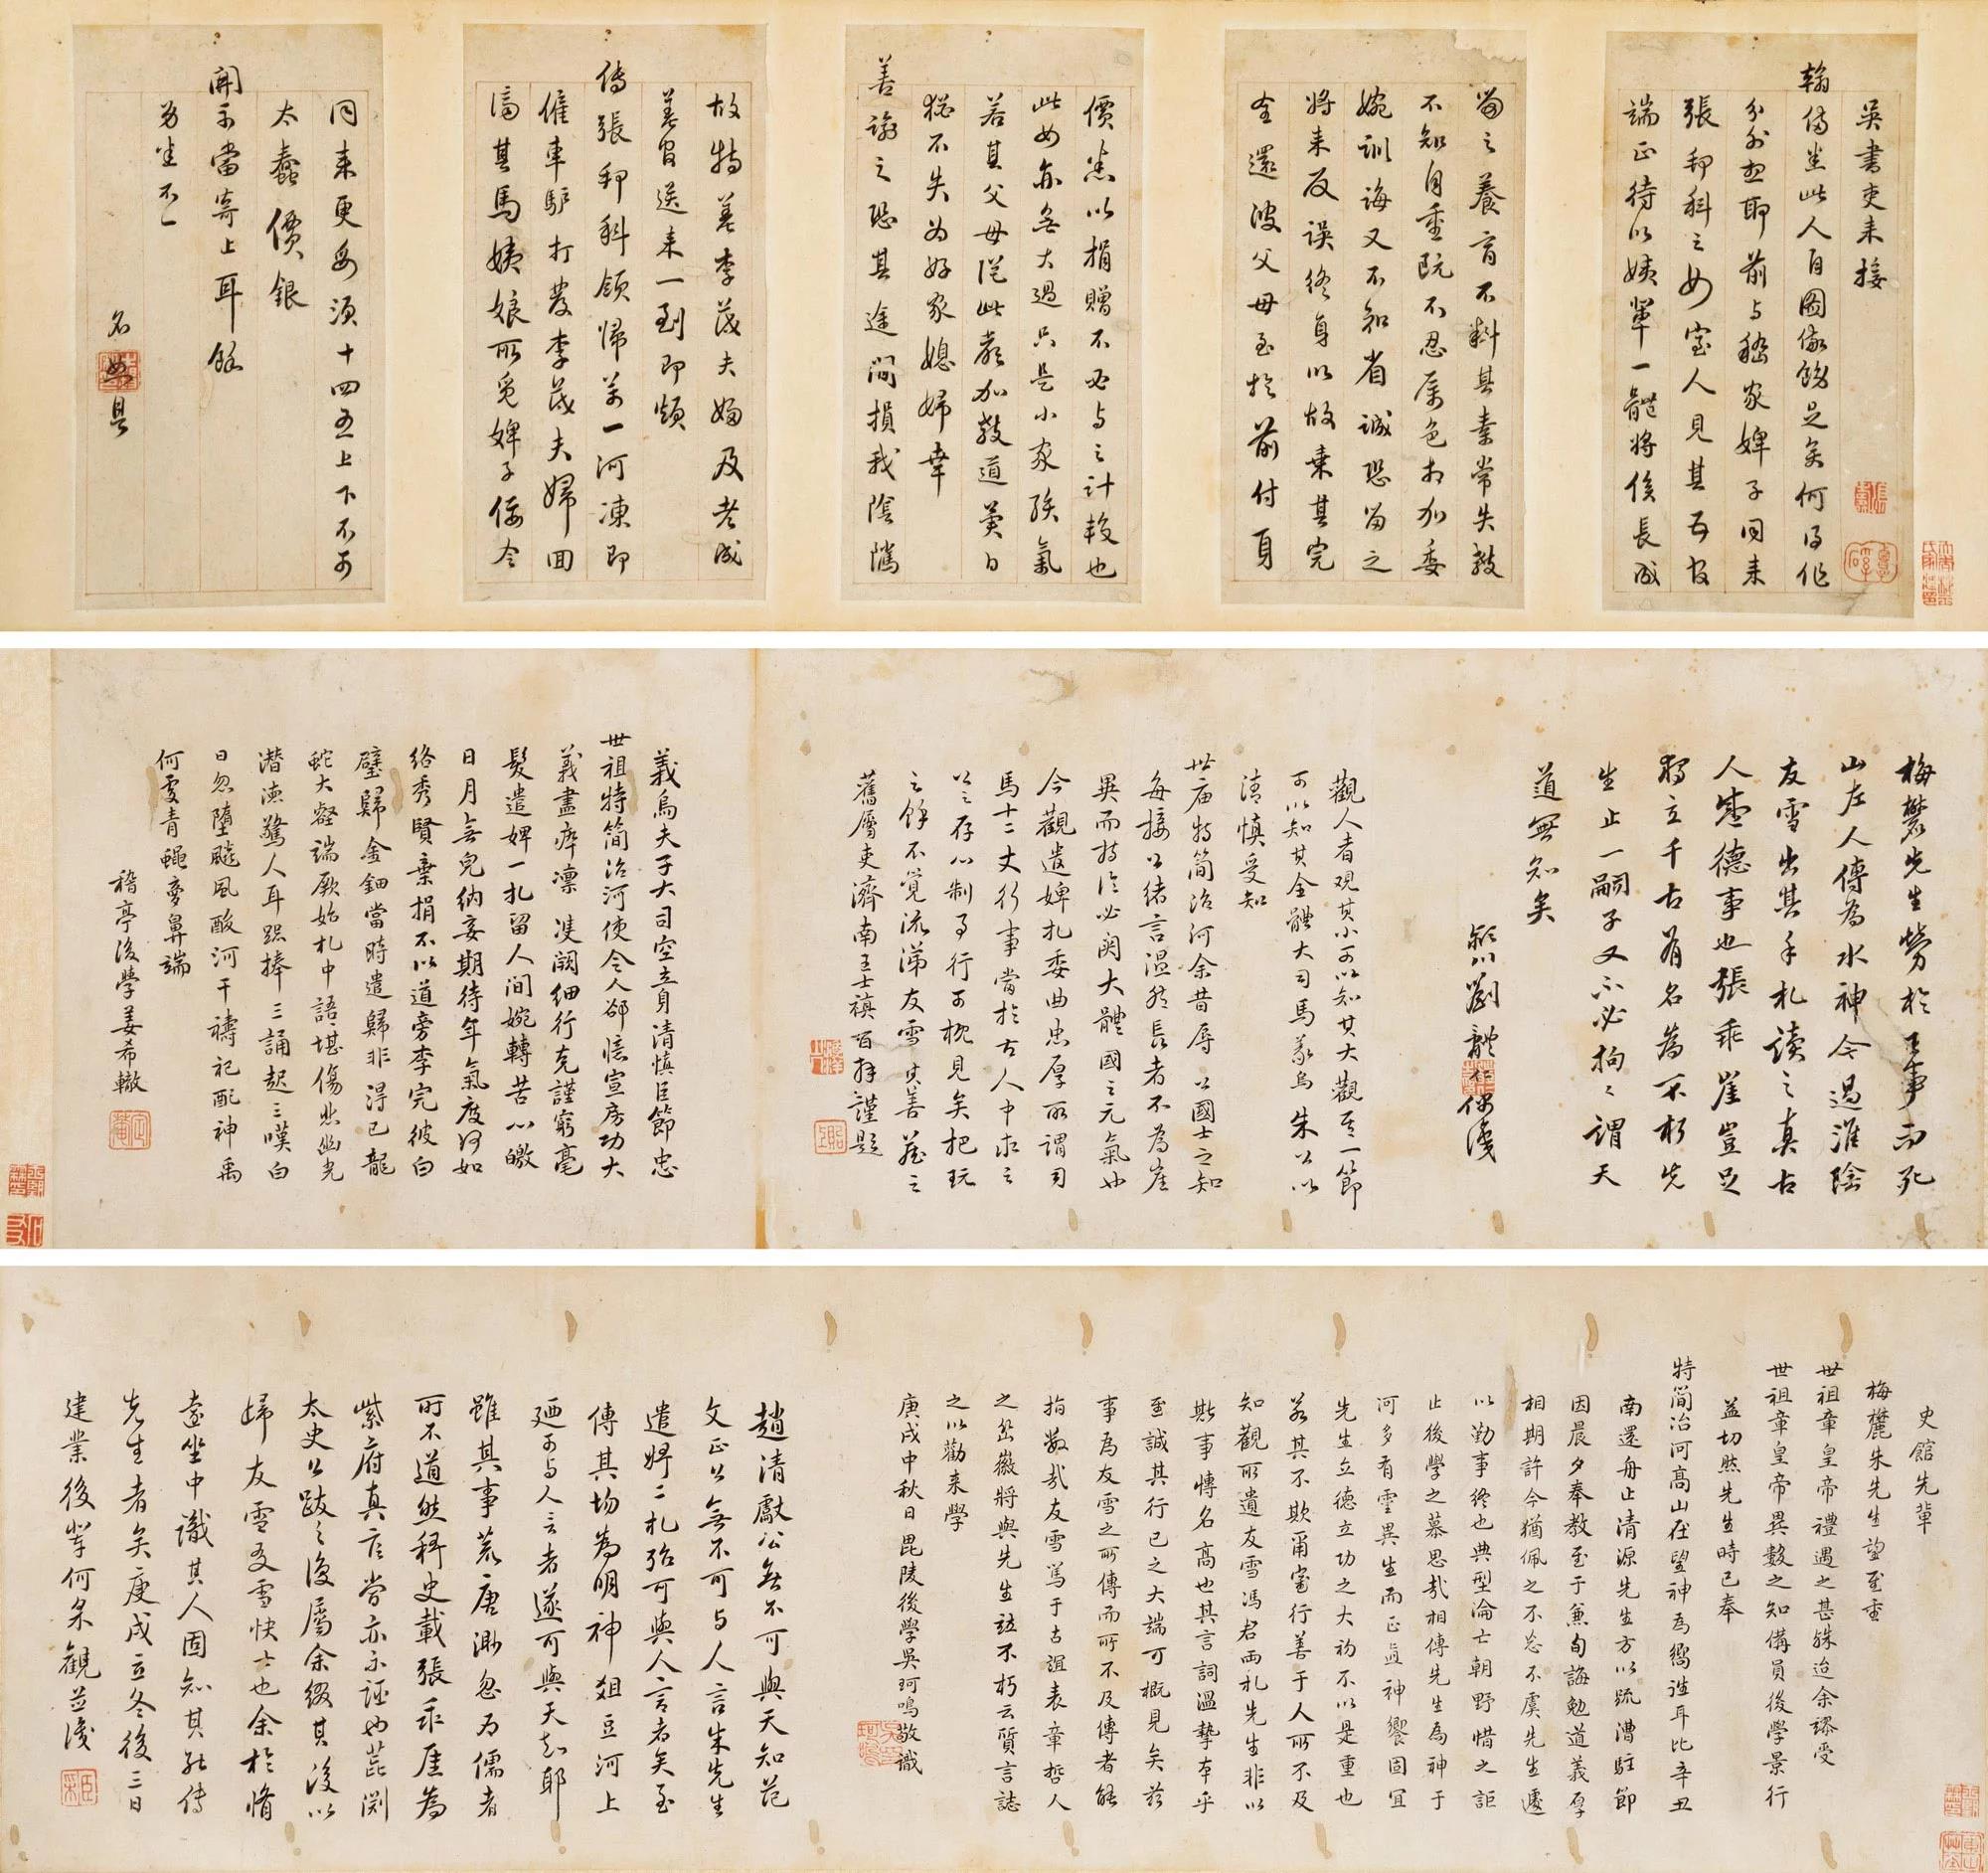 吳書吏來接
翰傷坐此人自圖傢餙足矣何得作
分外想耶前与嵇家婢子同來
張舒科之女室人見其
端正待以姨輩一體將俟長成
留之養育不料其素常失教
不知自重既不忍厲色相加委
婉訓誨又不知省誠恐留之
將來反誤終身以故棄其完
全還彼父母至於前付身
價悉以捐贈不必与之計較也
此女亦無大過只是小家孩氣
若其父母從此嚴加教道異日
猶不失為好家媳婦幸
善諭之恐其途間損我陰騭
故特差李茂夫婦及老成
差官送來一到即煩
傳張舒科領帰若一河凍即
僱車馿打發李茂夫婦回
濟其馬姨娘所覓婢子侄令
同來更妥須十四五上下不可
太蠢價銀
開示當寄上耳餘
名具
梅麓先生勞於王事而死
山左人傳為水神今過淮陰
友雪出其手札讀之真古
人盛德事也張乖崖豈足
獨立千古有名為不朽先
生止一嗣子又不必拘之謂天
道無知矣
潁川劉體仁偶識
觀人者观其小可以知其大觀其一節
可以知其全體大司馬義烏朱公以
清慎受知
世庙特簡治河余昔辱公國士之知
每接公緒言溫然長者不為崖
異而持論必闗大體國之元氣也
今觀遣婢札委曲忠厚所謂司
馬十二丈行事當於古人中求之
公之存心制事行可概見矣把玩
之餘不覺流涕友雪其善藏之
舊屬吏濟南王士禛百拜謹題
義烏夫子大司空立身清慎臣節忠
世祖特簡治河使令人卻憶宣房功大
義盡瘁凛雙闕細行克謹窮毫
髮遣婢一札留人間婉轉苦心皦
日月無兒納妾期待年氣度何如
络秀賢棄捐不以道旁李完彼白
璧歸金鈿當時遣歸非得已龍
蛇大壑端厥始札中語語堪傷悲幽光
潛德驚人耳跽捧三誦起三嘆白
日忽墮飈風酸河干禱祀配神禹
何處青蠅夢鼻端
稽亭後學姜希轍
史館先輩
梅麓朱先生望至重
世祖章皇帝禮遇之甚殊迨余謬受
世祖章皇帝異數之知備員後學景行
益切然先生時已奉
特簡治河高山在望神為嚮徃耳比辛丑
南還舟止清源先生方以疏漕駐節
因晨夕奉教至于兼旬誨勉道義厚
相期許今猶佩之不忘不虞先生遽
以勤事終也典型淪亡朝野惜之詎
止後學之慕思哉相傳先生為神于
河多有靈異生而正直神饗固宜
先生立德立功之大初不以是重也
若其不欺甭室行善于人所不及
知觀所遺友雪馮君两札先生非以
斯事慱名高也其言詞溫摯本乎
至誠其行己之大端可概見矣茲
事為友雪之所傳而所不及傳者能
指數哉友雪篤于古誼表章哲人
之丕徽將與先生竝不朽云質言誌
之以勸来學
庚戌中秋日毘陵後學吳珂鳴敬識
趙清獻公無不可與天知范
文正公無不可与人言朱先生
遣婢二札殆可與人言者矣至
傳其物為明神俎豆河上
廼可与人言者遂可與天知耶
雖其事荒唐渺忽为儒者
所不道然稗史載張乖厓為
紫府真官嘗亦不誣也茈渕
太史公跋之後屬余綴其後以
婦友雪友雪快士也余於脩
遠坐中識其人固知其能傳
先生者矣庚戌立冬後三日
建業後學何采觀並識